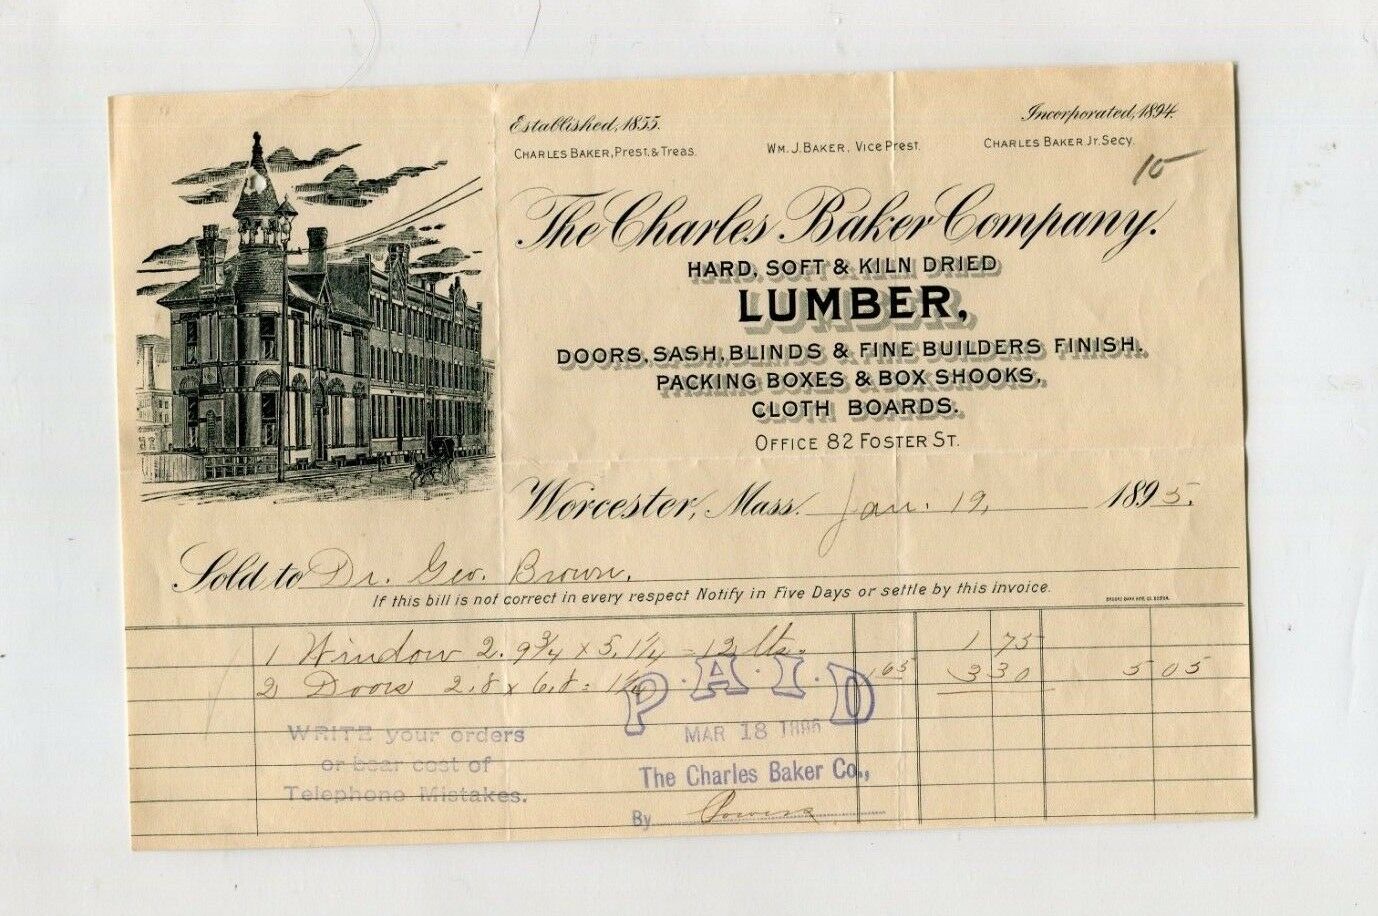 Established, 1855.
Incorporated, 1894.
CHARLES BAKER, Prest. & Treas.
WM. J. BAKER, Vice Prest.
CHARLES BAKER Jr. Secy.
10
The Charles Baker Company.
HARD, SOFT & KILN DRIED
LUMBER,
DOORS, SASH, BLINDS & FINE BUILDERS FINISH.
PACKING BOXES & BOX SHOOKS,
CLOTH BOARDS.
OFFICE 82 FOSTER ST.
Worcester, Mass. Jan. 19, 1895.
Sold to Dr. Geo. Brown.
If this bill is not correct in every respect Notify in Five Days or settle by this invoice.
1 Window 2. 9 3/4 x 5. 1 1/4 = 12 lts. 1 75
2 Doors 2.8 x 6.8 = 1 1/4 165 3 30 5 05
P.A.I.D
WRITE your orders
or bear cost of
Telephone Mistakes.
MAR 18 1895
The Charles Baker Co.,
By Powers